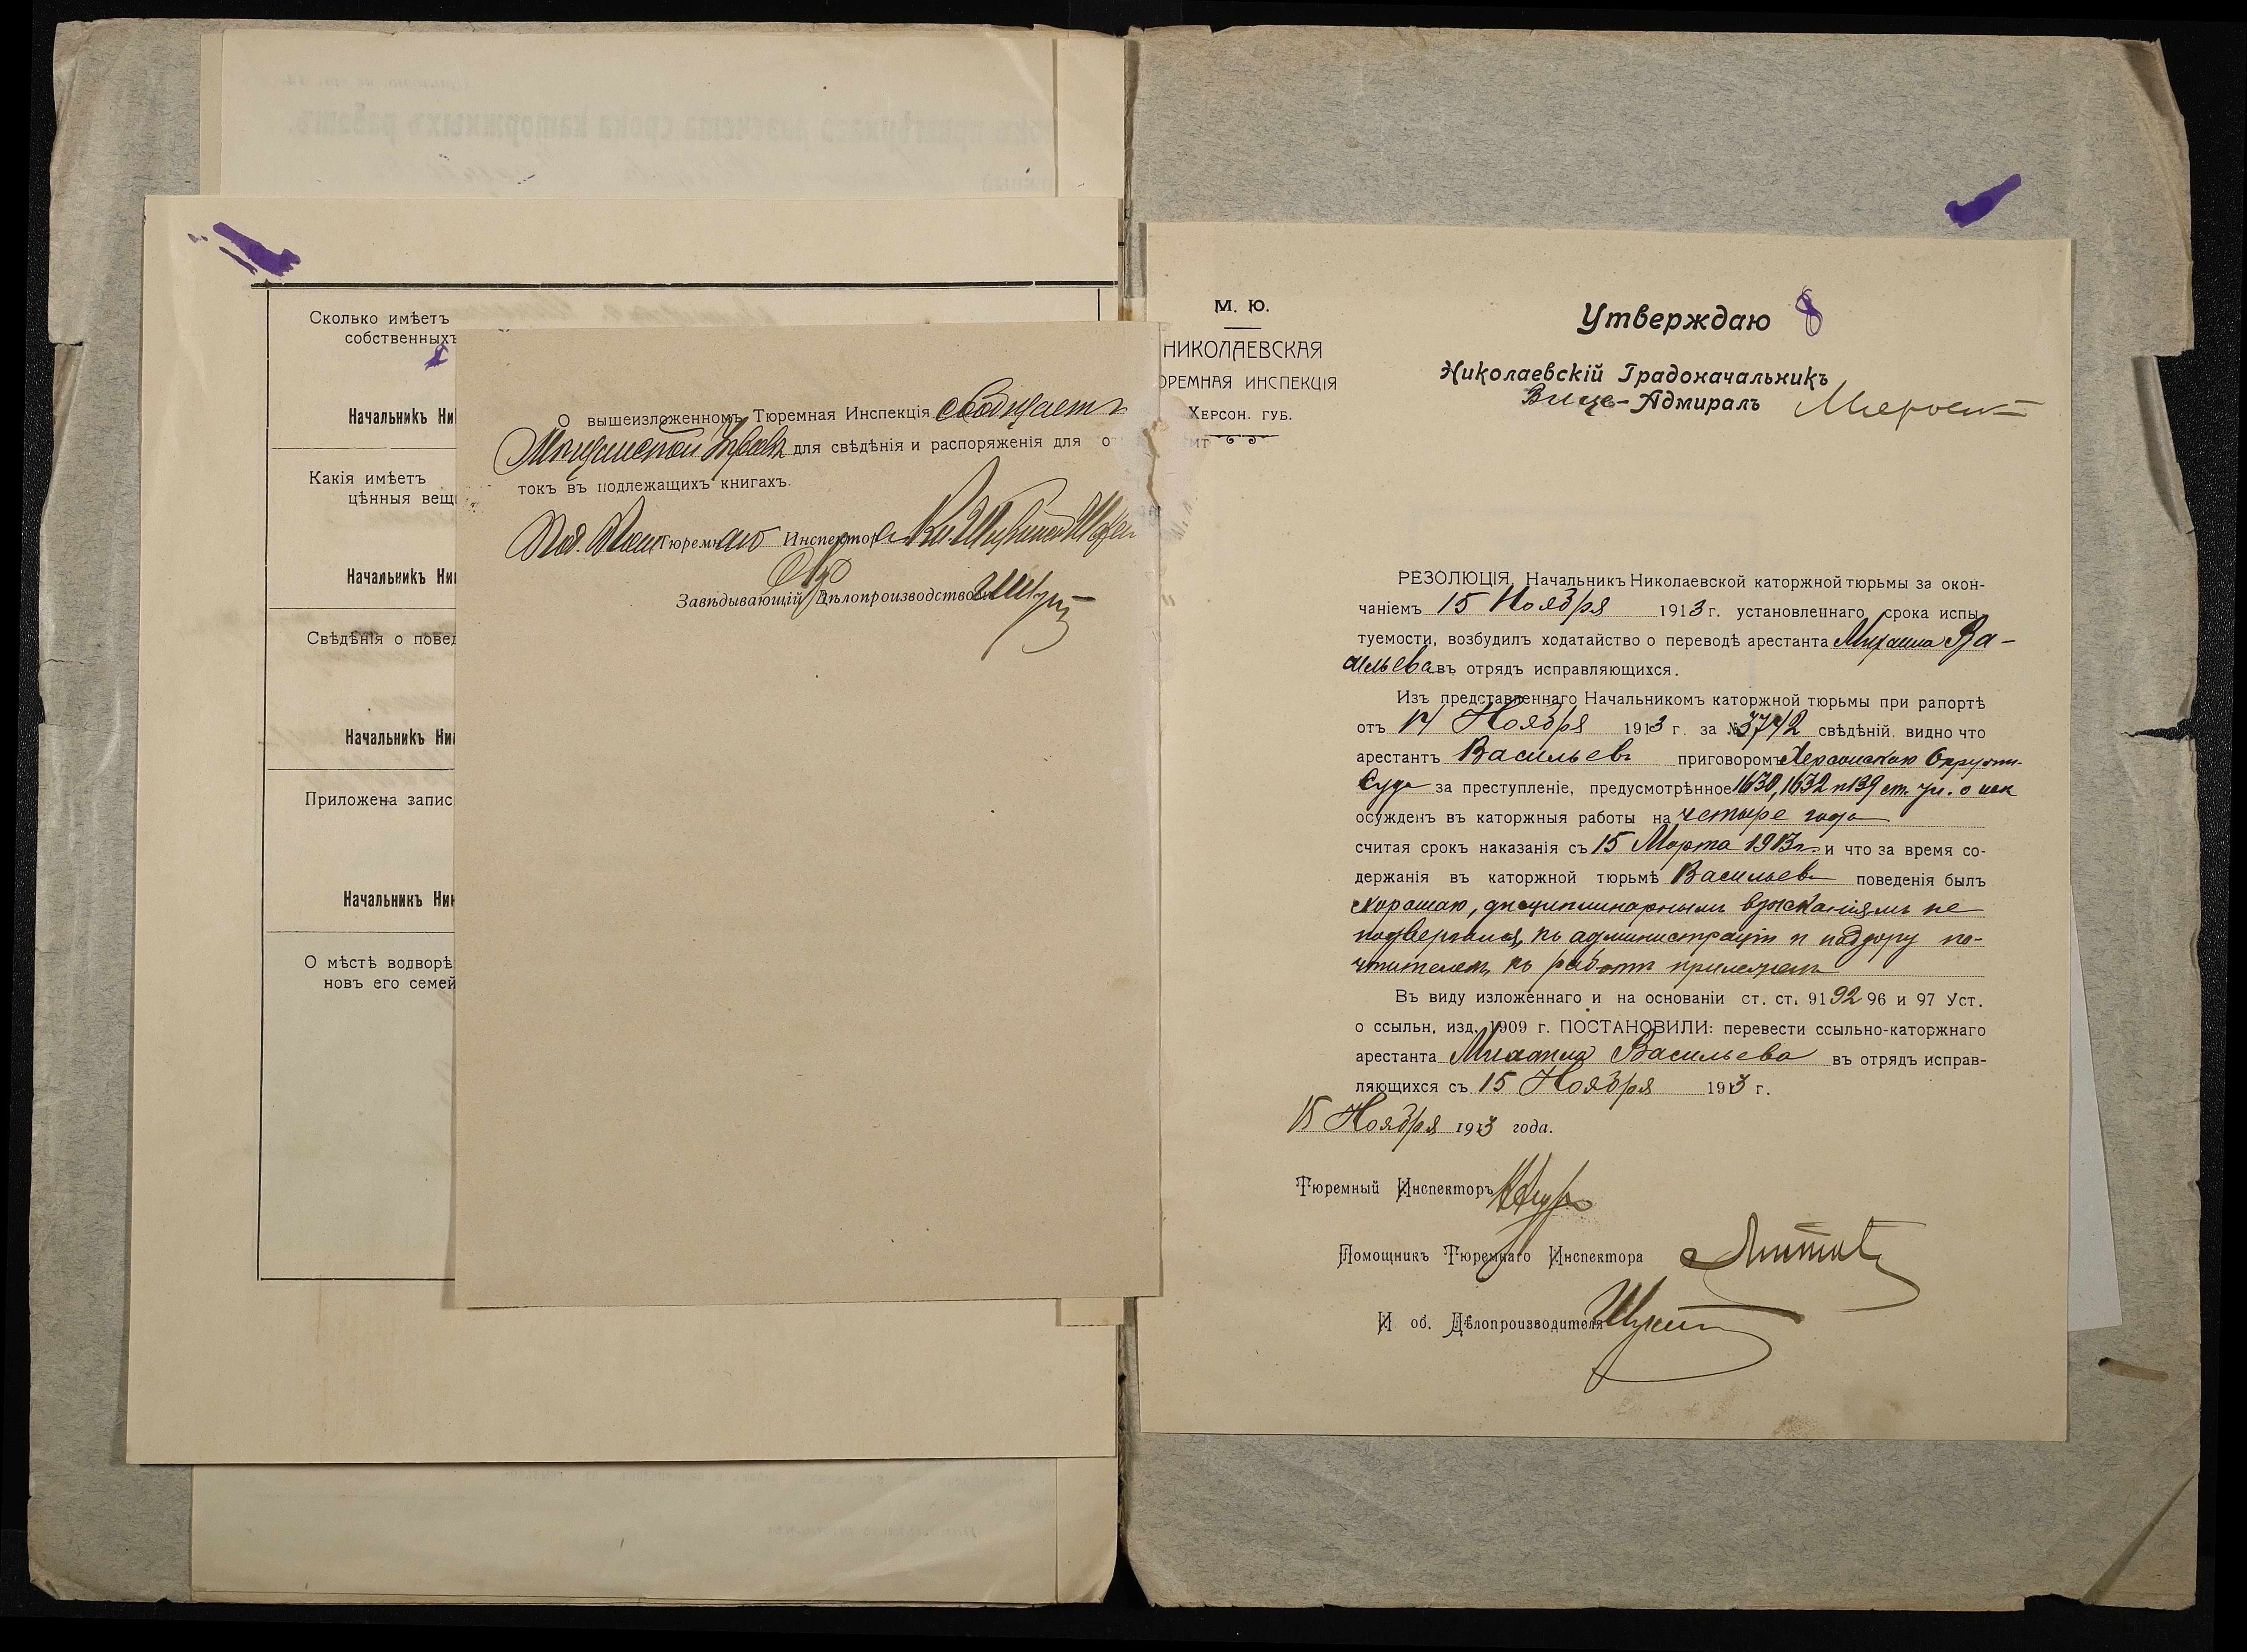 Сколько имѣетъ
собственныхъ
Начальникъ Ник
Какія имѣетъ
цѣнныя вещ
Начальникъ Ни
Свѣдѣнія о повед
Начальникъ Ни
Приложена запис
Начальникъ Ник
О мѣстѣ водворѣ
новъ его семей
О вышеизложенномъ Тюремная Инспекція сообщаетъ
для свѣдѣнія и распоряженія для о
токъ въ подлежащихъ книгахъ.
Тюремнаго Инспектора
Завѣдывающій Дѣлопроизводствомъ
М. Ю.
НИКОЛАЕВСКАЯ
ЮРЕМНАЯ ИНСПЕКЦІЯ
ХЕРСОН. ГУБ.
Утверждаю 8
Николаевскій Градоначальникъ
Вице-Адмиралъ
РЕЗОЛЮЦІЯ, Начальникъ Николаевской каторжной тюрьмы за окон-
чаніемъ 15 Ноября 1913 г. установленнаго срока испы-
туемости, возбудилъ ходатайство о переводѣ арестанта Михаила Ва-
сильева въ отрядъ исправляющихся.
Изъ представленнаго Начальникомъ каторжной тюрьмы при рапортѣ
отъ 14 Ноября 1913 г. за № 3742 свѣдѣній видно что
арестантъ Васильевъ приговоромъ Херсонскаго Окружн.
Суда за преступленіе, предусмотрѣнное 1630, 1632 и 139 ст. Ул. о нак
осужденъ въ каторжныя работы на четыре года
считая срокъ наказанія съ 15 Марта 1913 г. и что за время со-
держанія въ каторжной тюрьмѣ Васильевъ поведенія былъ
хорошаго, дисциплинарнымъ взысканіямъ не
подвергался, къ администраціи и надзору по-
чтителенъ, къ работѣ прилеженъ
Въ виду изложеннаго и на основаніи ст. ст. 91 92 96 и 97 Уст.
о ссыльн. изд. 1909 г. ПОСТАНОВИЛИ: перевести ссыльно-каторжнаго
арестанта Михаила Васильева въ отрядъ исправ-
ляющихся съ 15 Ноября 1913 г.
15 Ноября 1913 года.
Тюремный Инспекторъ
Помощникъ Тюремнаго Инспектора
И об. Дѣлопроизводителя